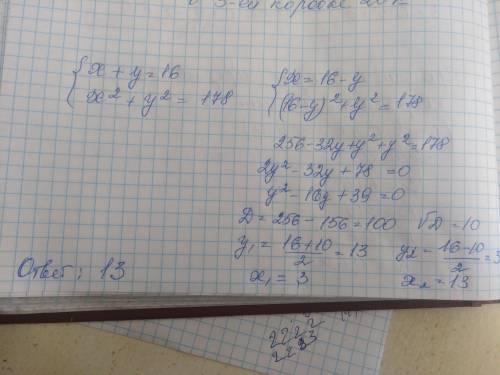 в 3-ей коробке
{x + y = 16
x² + y² = 178
{x = 16 - y
(16-y)² + y² = 178
256 - 32y + y² + y² = 178
2y² - 32y + 78 = 0
y² - 16y + 39 = 0
D = 256 - 156 = 100 √D = 10
y₁ = (16+10)/2 = 13 y₂ = (16-10)/2 = 3
x₁ = 3 x₂ = 13
Ответ: 13